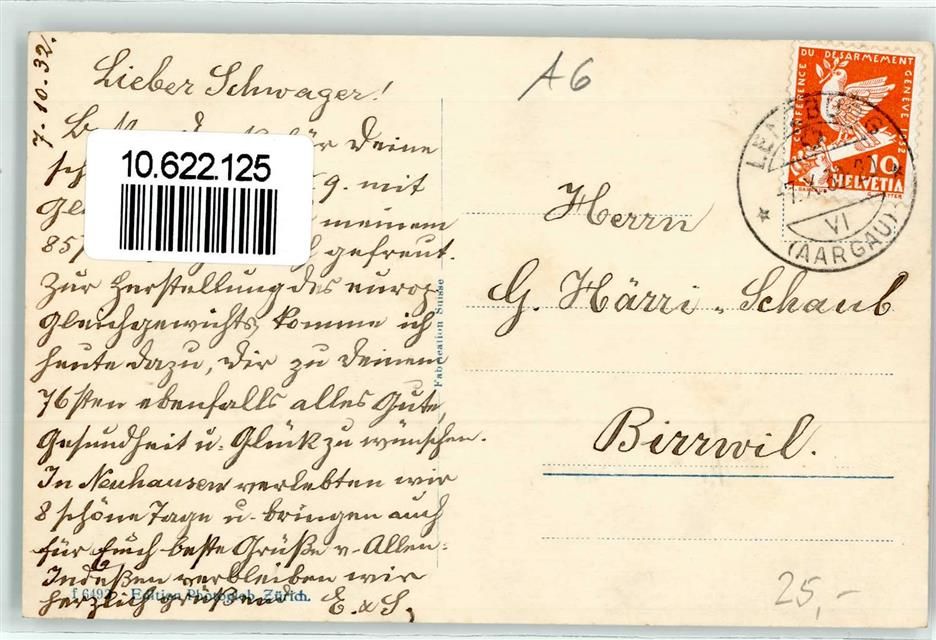 7.10.32.
Lieber Schwager!
für Deine
10.622.125
mit
meinem
85 gefreut.
Zur Herstellung des europ.
Gleichgewichts komme ich
heute dazu, Dir zu Deinem
76sten ebenfalls alles Gute,
Gesundheit u. Glück zu wünschen.
In Neuhausen verlebten wir
8 schöne Tage u. bringen auch
für Euch beste Grüße v. Allen.
Indeßen verbleiben wir
herzlich grüßend E. & S.
f 6492 Edition Photoglob, Zürich.
Fabrication Suisse
A6
CONFERENCE DU DESARMEMENT GENEVE
10
HELVETIA
LENZBURG
VI
(AARGAU)
Herrn
G. Härri-Schaub
Birrwil.
25,-